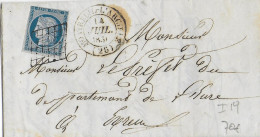 14
JUIL.
(26)
Monsieur
Monsieur
Le Préfet du
département de l'Eure
à Evreux